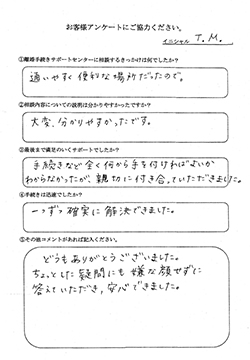 お客様アンケートにご協力ください。
イニシャル T.M.
①離婚手続きサポートセンターに相談するきっかけは何でしたか？
通いやすく便利な場所だったので。
②相談内容についての説明は分かりやすかったですか？
大変、分かりやすかったです。
③最後まで満足のいくサポートでしたか？
手続きなど全く何から手を付ければよいか
わからなかったが、親切に付き合っていただきました。
④手続きは迅速でしたか？
一つずつ確実に解決できました。
⑤その他コメントがあれば記入ください。
どうもありがとうございました。
ちょっとした疑問にも嫌な顔せずに
答えていただき、安心できました。